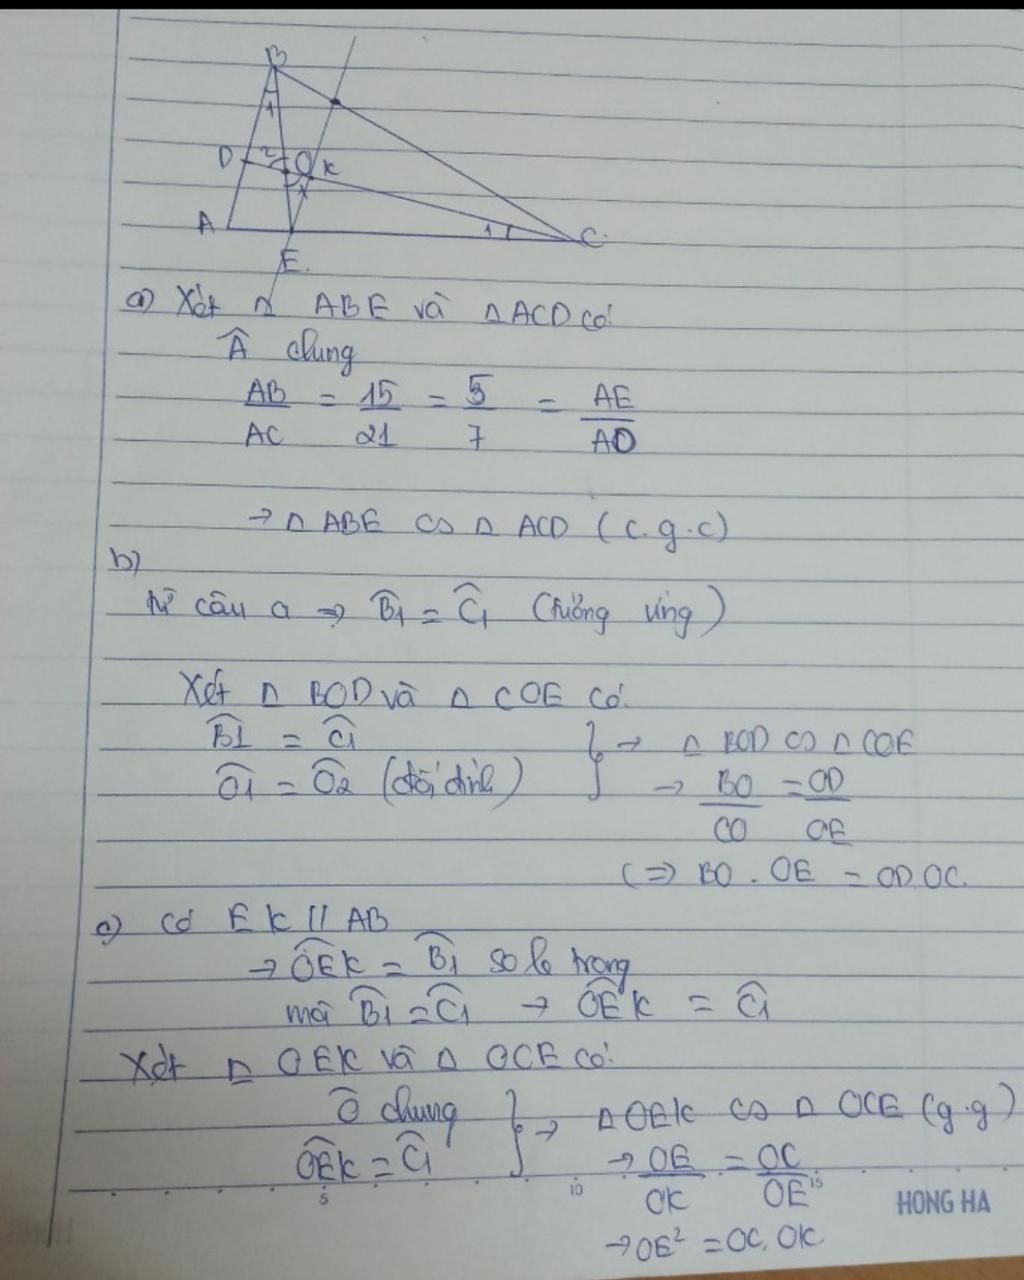 B
1
D 2 O K
1
A 1 C
E
a) Xét Δ ABE và Δ ACD có:
Â chung
AB/AC = 15/21 = 5/7 = AE/AD
→ Δ ABE ∽ Δ ACD (c.g.c)
b)
từ câu a => B̂1 = Ĉ1 (tương ứng)
Xét Δ BOD và Δ COE có:
B̂1 = Ĉ1
Ô1 = Ô2 (đối đỉnh)
} → Δ BOD ∽ Δ COE
→ BO/CO = OD/OE
(=) BO . OE = OD. OC.
c) Có EK // AB
→ OÊK = B̂1 so le trong
mà B̂1 = Ĉ1 → OÊK = Ĉ1
Xét Δ OEK và Δ OCE có:
Ô chung
OÊK = Ĉ1
} → Δ OEK ∽ Δ OCE (g.g)
→ OE/OK = OC/OE
→ OE² = OC. OK
5 10 15 HONG HA